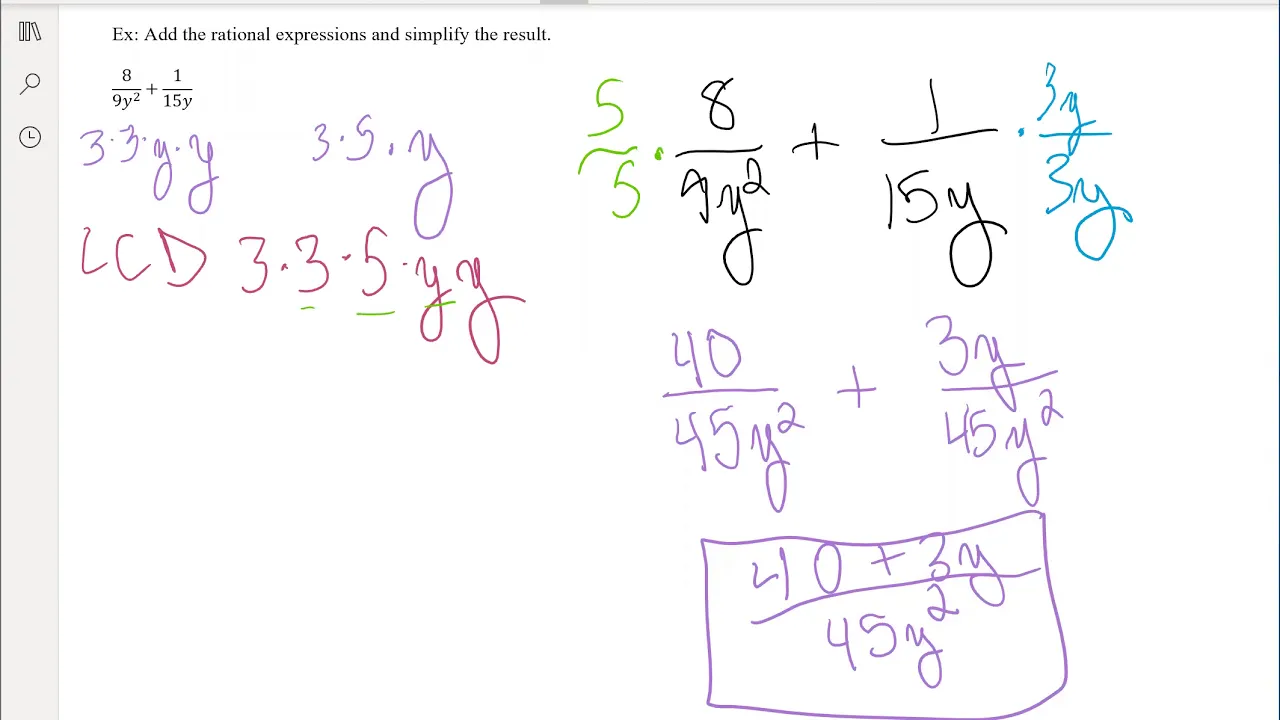 Ex: Add the rational expressions and simplify the result.
8/9y² + 1/15y
3·3·y·y 3·5·y
LCD 3·3·5·y y
5/5 · 8/9y² + 1/15y · 3y/3y
40/45y² + 3y/45y²
40 + 3y/45y²